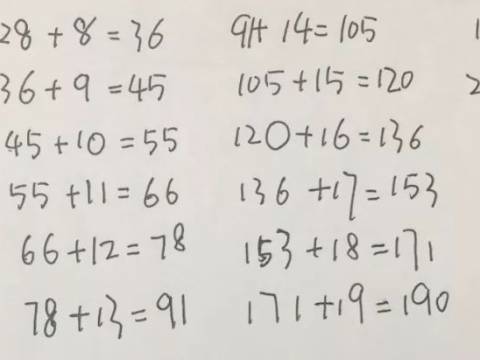 28 + 8 = 36
36 + 9 = 45
45 + 10 = 55
55 + 11 = 66
66 + 12 = 78
78 + 13 = 91
91+ 14 = 105
105 + 15 = 120
120 + 16 = 136
136 + 17 = 153
153 + 18 = 171
171 + 19 = 190